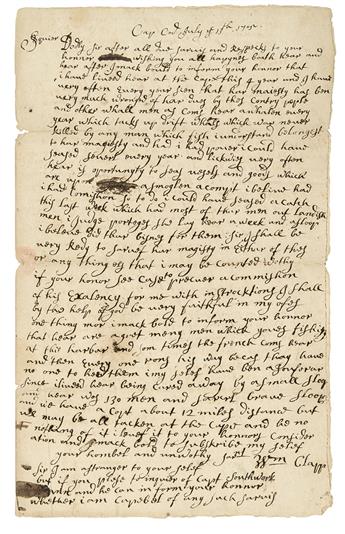 Cap Cod July ye 13th 1705
Squier
Dudly Sir after all due sarvis and Respecks to your
honnor wishing you all happynes both hear and
hear after I mack bould to inform your honnor that
i have liveed hear at the Cape this 4 year and I have
very often every year sien that har magiesty has ben
very much wronged of har dues by thes Contry peple
and other whall men as Coms hear a whalen every
year which tacks up drift whals which was never
killed by any men which fish i understand belongest
to har magiesty and had i had power i could have
seased severl every year and lickwis very often
hear is opportunity to seas vesels and goods which
are upon a smoglen acompt i believe had
i had a Comishon so to do i could have seased a catch
this last week which had most of thar men out landish
men I judge porteges She lay hear a week and
i beleve do thar bisnes for them; Sir I shall be
very redy to sarve har magisty in Either of thes
or any thing els that i may be Counted wothy
if your honnor see Case to precuer a commishon
of his Exalency for me with instrocktions I shall
by the help of god be very faithful in my ofes
one thing mor i mack bolde to inform your honnor
that hear are a gret meny men which goues fishing
at this harbar and som tames the french coms hear
and then every one rons his way becas thay have
no one to head them my selfe have ben asufarar
since i lived hear being cared away by a small sloop
and hear was 130 men and severl brave sloops
and we have a Cort about 12 miles distance but
we may be all tacken at the Cape and be no
nothing of it i leave it to your honnors Consider
ation and mack bold to subscribe my selfe
your hombel and unwothy Sarnt Wm Clapp
Sir I am astranger to your selfe
but if you plese to inquier of Capt Southwork
and he can inform your honnor
whether i am Capebel of any such Sarvis